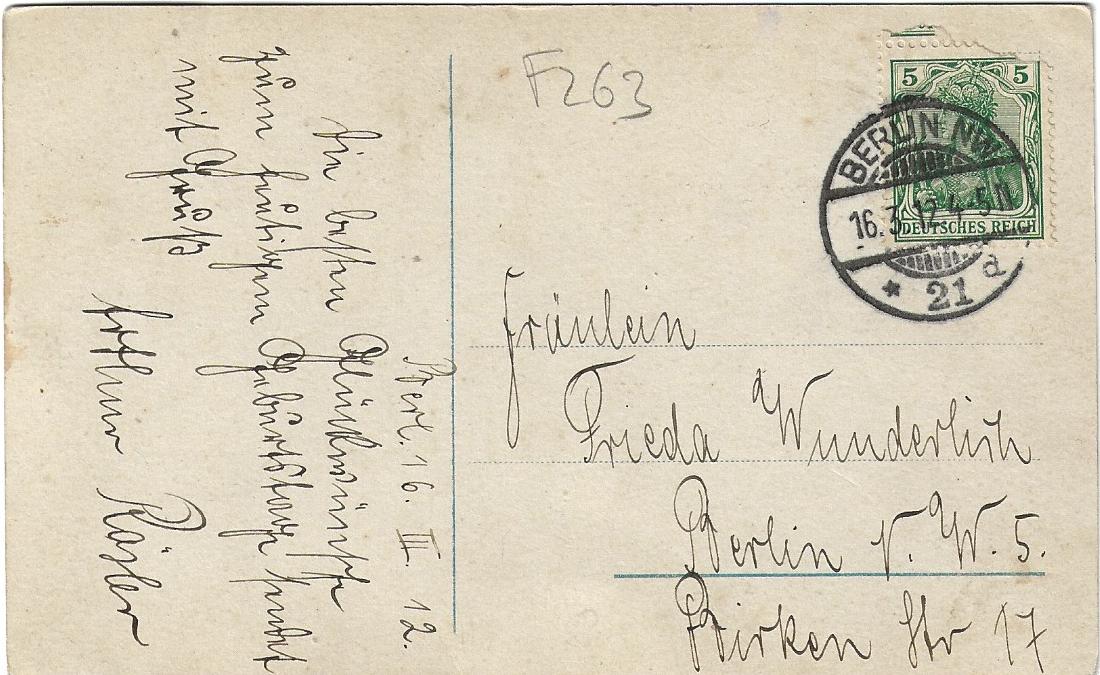 Berl. 16. III. 12.
Die besten Glückwünsche
zum heutigen Geburtstage sendet
mit Gruß
Arthur Rösler
F263
5 5
DEUTSCHES REICH
BERLIN NW
16.3.12.4-5N
* 21 a
Fräulein
Frieda Wunderlich
Berlin N. W. 5.
Birken Str 17